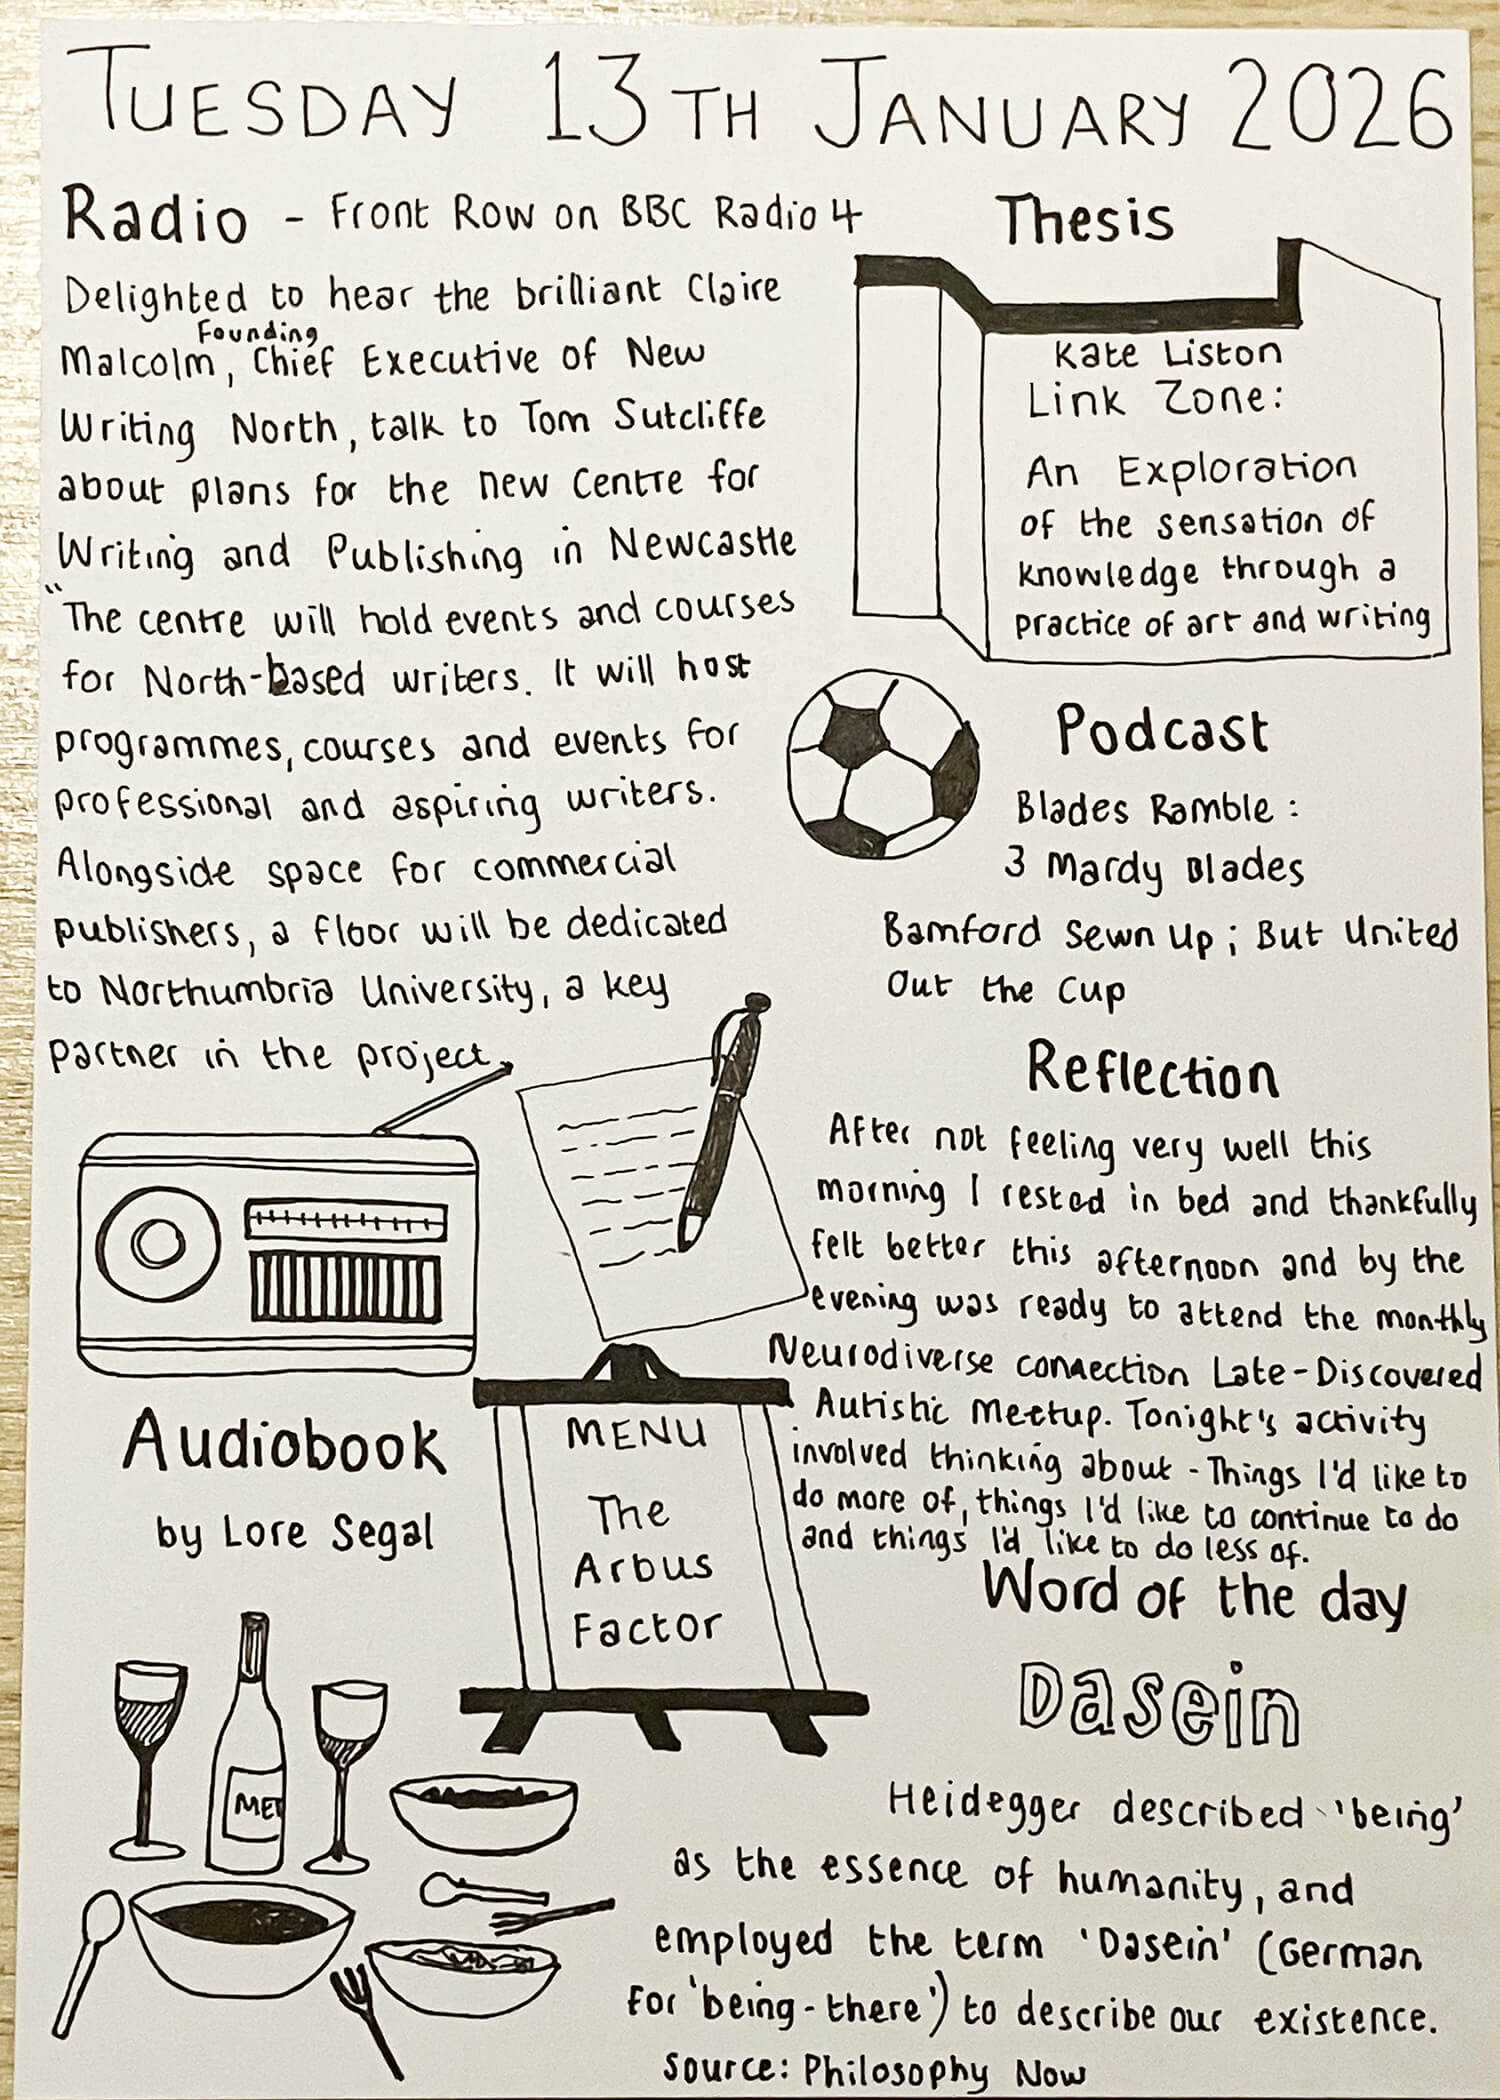 TUESDAY 13TH JANUARY 2026
Radio - Front Row on BBC Radio 4
Delighted to hear the brilliant Claire
Founding
Malcolm, Chief Executive of New
Writing North, talk to Tom Sutcliffe
about plans for the new Centre for
Writing and Publishing in Newcastle
"The centre will hold events and courses
for North-based writers. It will host
programmes, courses and events for
professional and aspiring writers.
Alongside space for commercial
publishers, a floor will be dedicated
to Northumbria University, a key
partner in the project.
Thesis
Kate Liston
Link Zone:
An Exploration
of the sensation of
knowledge through a
practice of art and writing
Podcast
Blades Ramble:
3 Mardy Blades
Bamford Sewn Up; But United
Out the Cup
Reflection
After not feeling very well this
morning I rested in bed and thankfully
felt better this afternoon and by the
evening was ready to attend the monthly
Neurodiverse connection Late-Discovered
Autistic Meetup. Tonight's activity
involved thinking about - Things I'd like to
do more of, things I'd like to continue to do
and things I'd like to do less of.
Audiobook
by Lore Segal
MENU
The
Arbus
Factor
MER
Word of the day
Dasein
Heidegger described 'being'
as the essence of humanity, and
employed the term 'Dasein' (German
for 'being-there') to describe our existence.
Source: Philosophy Now